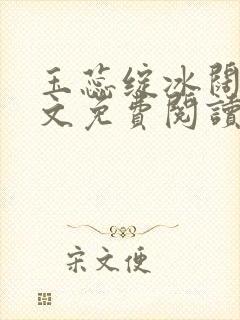 玉蕊綻冰闊
文免費閱讀
宋文便